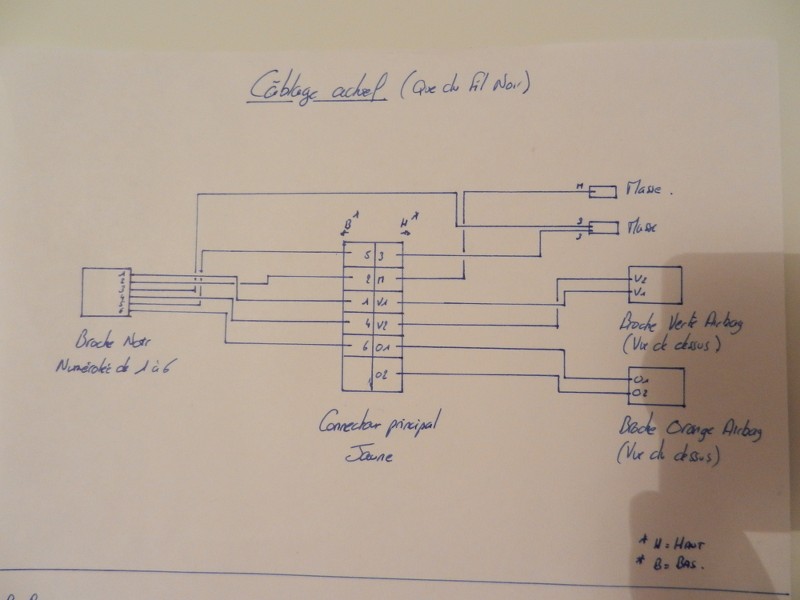 Câblage actuel (Que du Fil Noir)
M Masse.
J Masse
J
B* H*
5 J
2 M
1 V1
4 V2
6 O1
O2
V2
V1
Broche Noir
Numérotée de 1 à 6
Broche Verte Airbag
(Vue de dessus)
O1
O2
Connecteur principal
Jaune
Broche Orange Airbag
(Vue du dessus)
* H = HAUT
* B = BAS.